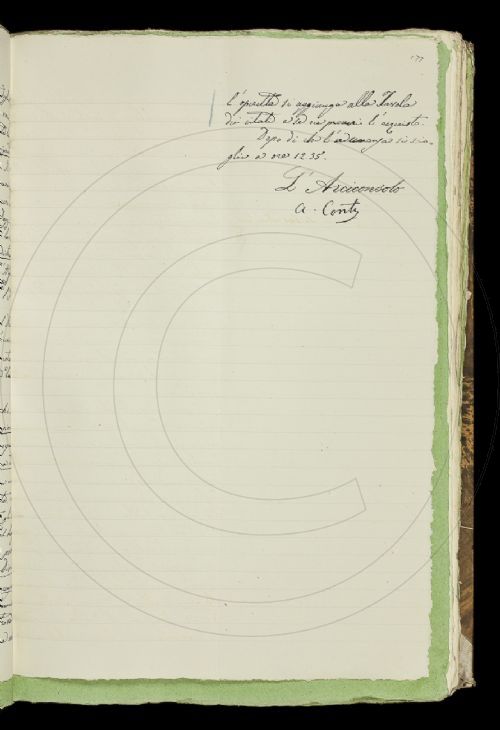 177
l'opuscolo si aggiunga alla Tavola
dei citati e se ne procuri l'acquisto.
Dopo di che l'adunanza si scio-
glie a ore 12.35.
L'Arciconsolo
A. Conti